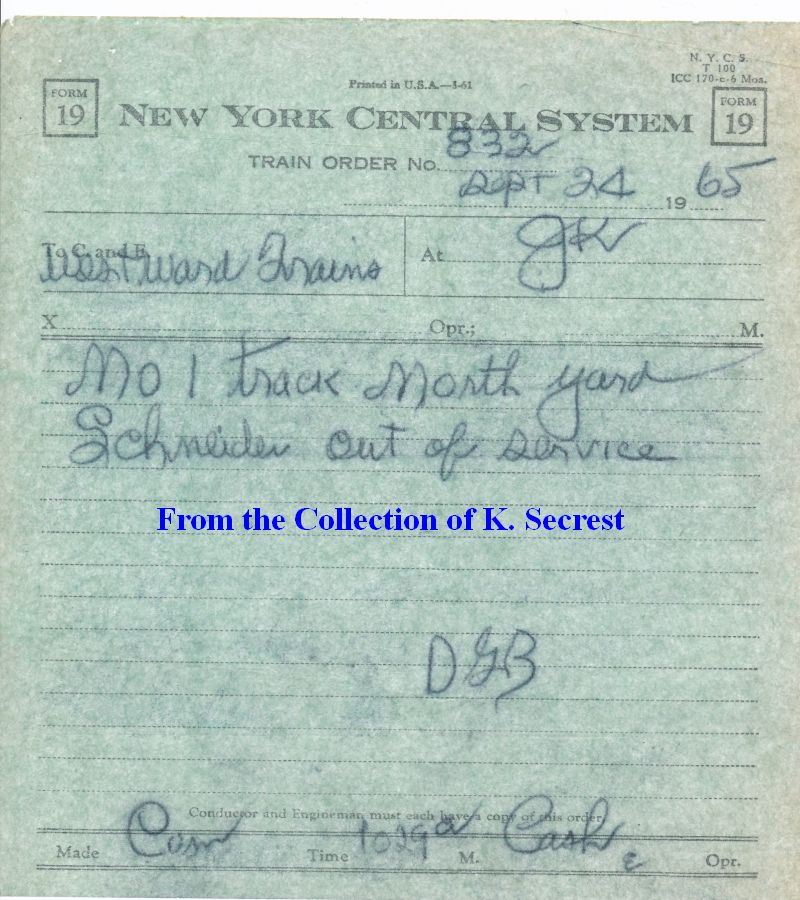 N. Y. C. S.
T 100
ICC 170-c-6 Mos.
Printed in U.S.A.—5-61
FORM 19
NEW YORK CENTRAL SYSTEM
FORM 19
TRAIN ORDER No. 832
Sept 24 19 65
To C. and E.
Westward Trains
At JK
X Opr.; M.
No 1 track North yard
Schneider out of service
From the Collection of K. Secrest
DGB
Conductor and Engineman must each have a copy of this order
Made Com Time 1029 a M. Cash Opr.